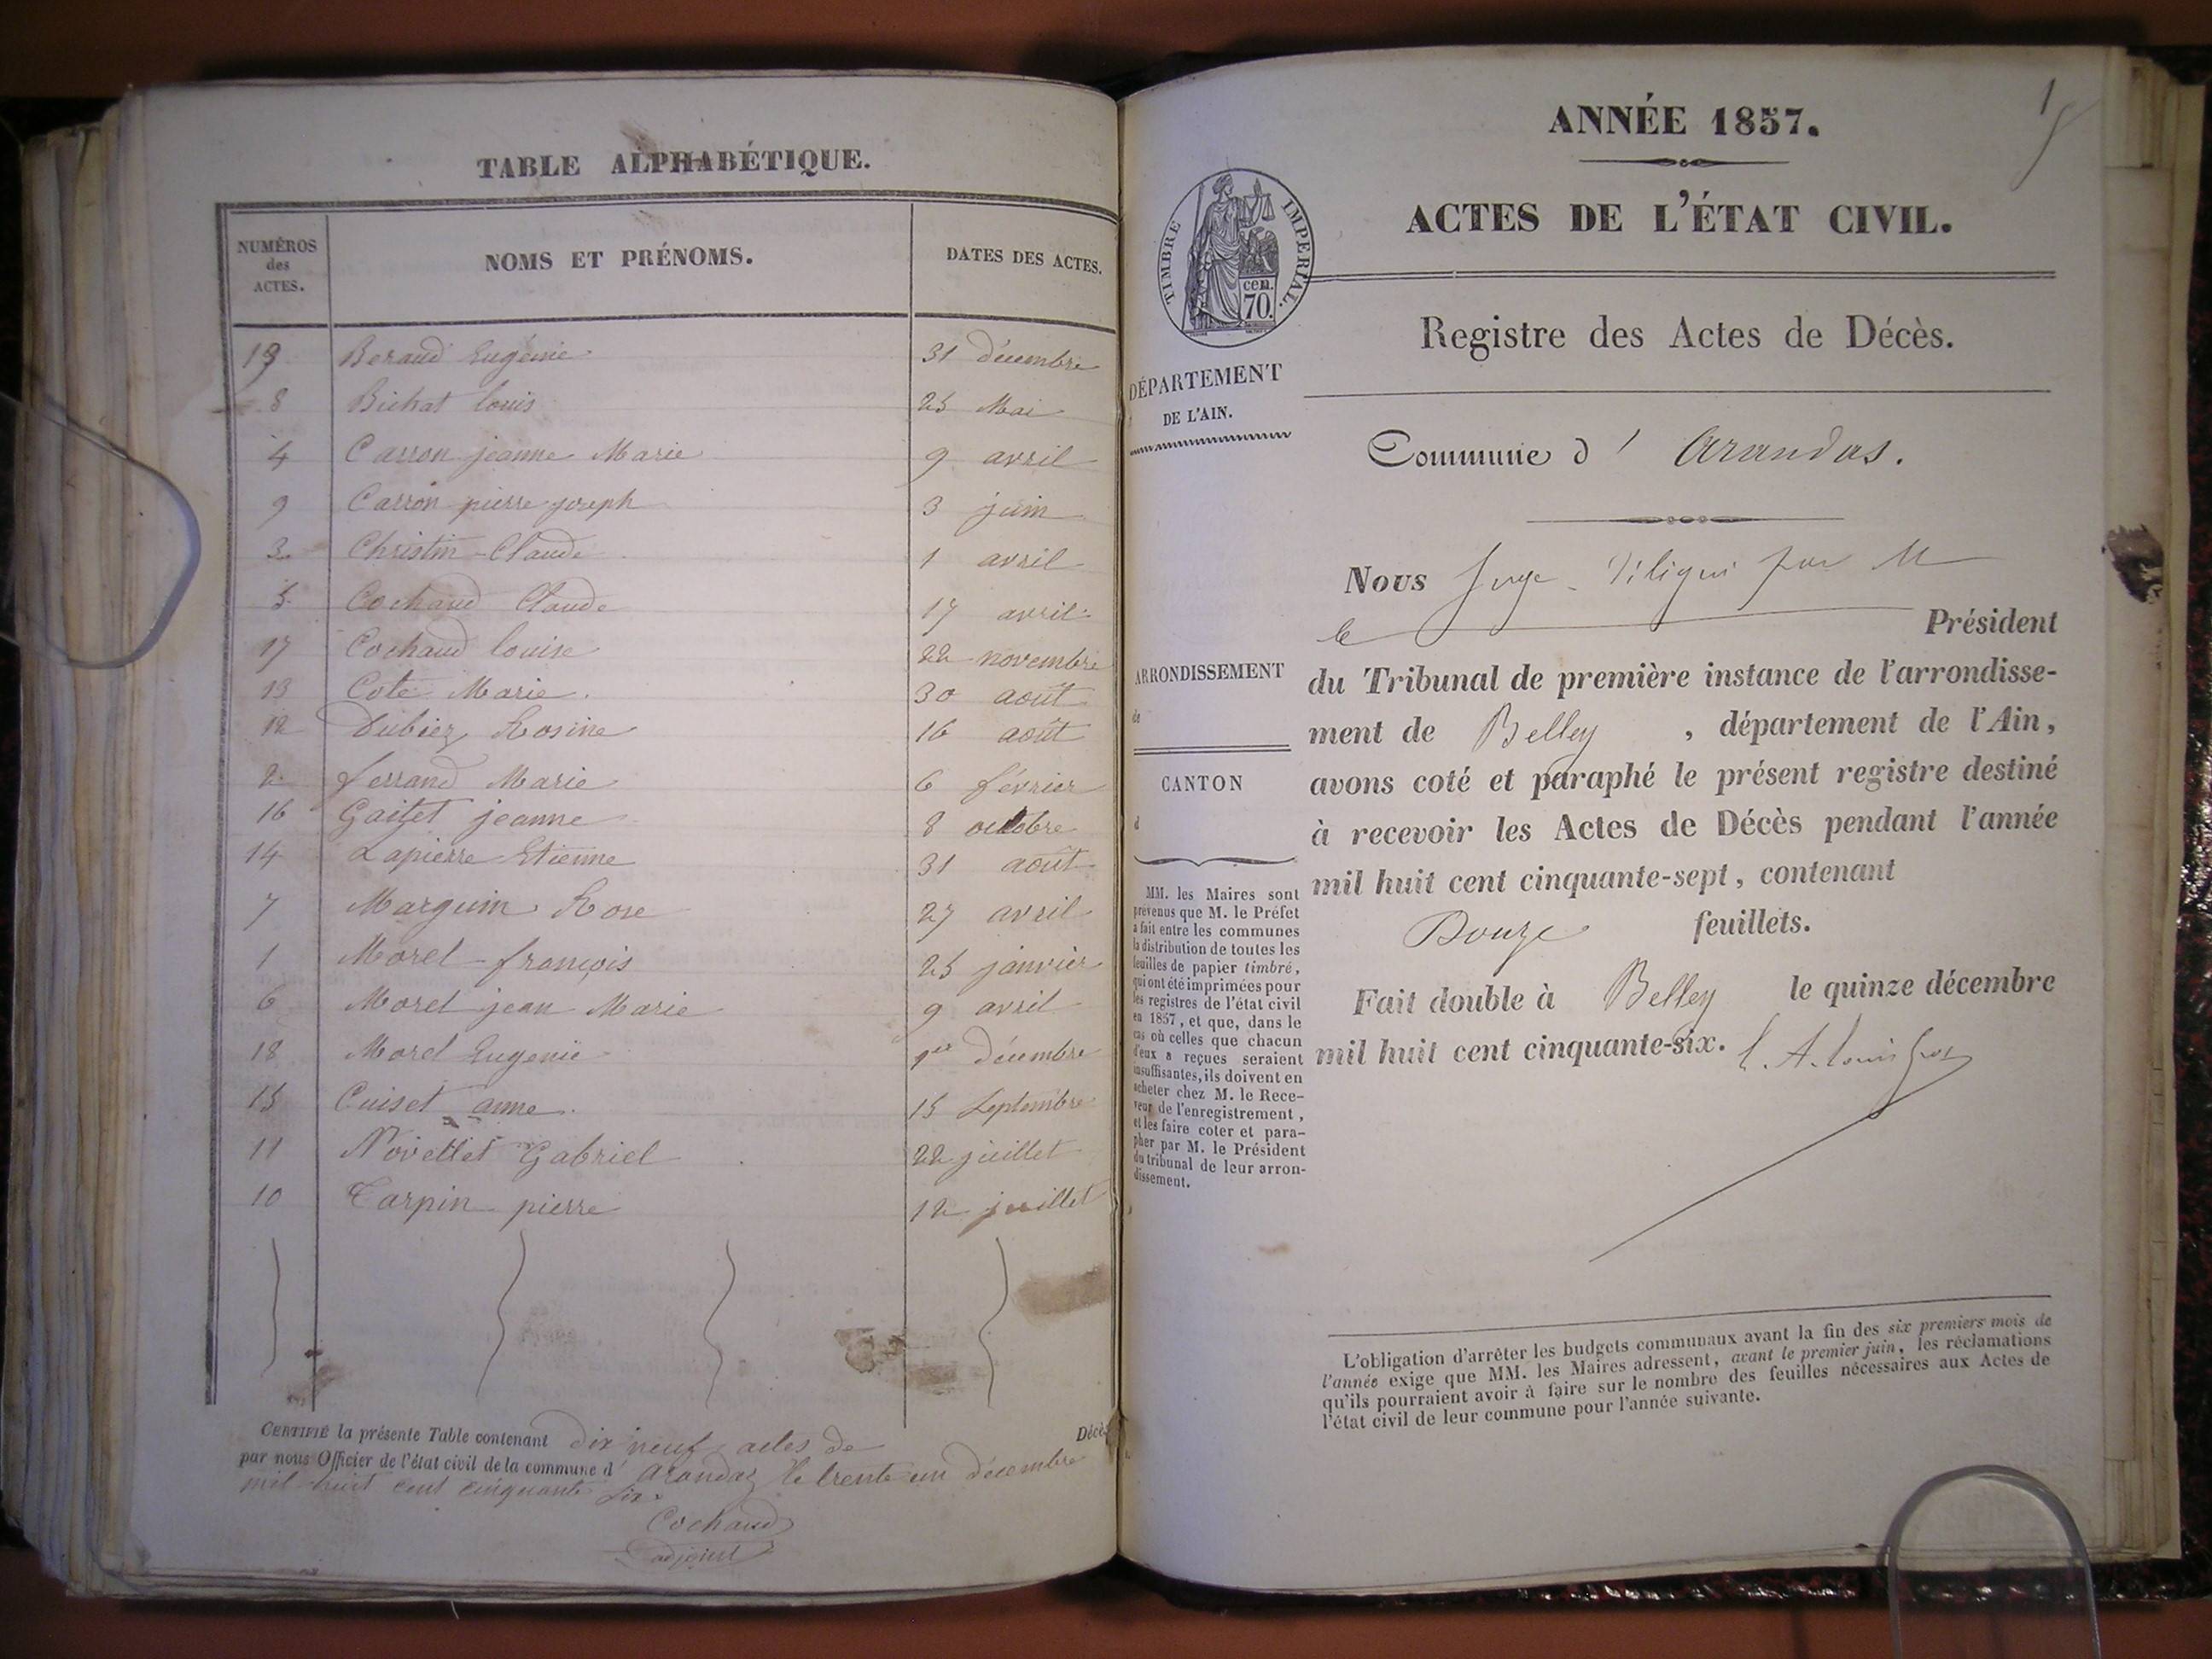 TABLE ALPHABÉTIQUE.
NUMÉROS des ACTES. NOMS ET PRÉNOMS. DATES DES ACTES.
19 Beraud Eugénie 31 décembre
8 Bichat louis 25 Mai
4 Carron jeanne Marie 9 avril
9 Carron pierre joseph 3 juin
3 Christin Claude 1 avril
5 Cochaud Claude 17 avril
17 Cochaud louise 22 novembre
13 Cote Marie 30 août
12 Dubiez Rosine 16 août
2 ferrand Marie 6 février
16 Gaitet jeanne 8 octobre
14 Lapierre Etienne 31 août
7 Marguin Rose 27 avril
1 Morel françois 25 janvier
6 Morel jean Marie 9 avril
18 Morel Eugenie 1er décembre
15 Cuiset anne 15 Septembre
11 Novellet Gabriel 22 juillet
10 Tarpin pierre 12 juillet
CERTIFIÉ la présente Table contenant dix neuf actes de Décès
par nous Officier de l'état civil de la commune d' arandaz le trente un décembre
mil huit cent cinquante six.
Cochaud
adjoint
1
ANNÉE 1857.
ACTES DE L'ÉTAT CIVIL.
TIMBRE IMPERIAL.
cen.
70.
Registre des Actes de Décès.
DÉPARTEMENT
DE L'AIN.
Commune d' Arandas.
Nous Juge par M
le Président
ARRONDISSEMENT
de
du Tribunal de première instance de l'arrondisse-
ment de Belley , département de l'Ain,
CANTON
d
avons coté et paraphé le présent registre destiné
à recevoir les Actes de Décès pendant l'année
mil huit cent cinquante-sept, contenant
Douze feuillets.
Fait double à Belley le quinze décembre
mil huit cent cinquante-six.
MM. les Maires sont
prévenus que M. le Préfet
a fait entre les communes
la distribution de toutes les
feuilles de papier timbré,
qui ont été imprimées pour
les registres de l'état civil
en 1857, et que, dans le
cas où celles que chacun
d'eux a reçues seraient
insuffisantes, ils doivent en
acheter chez M. le Rece-
veur de l'enregistrement,
et les faire coter et para-
pher par M. le Président
du tribunal de leur arron-
dissement.
L'obligation d'arrêter les budgets communaux avant la fin des six premiers mois de
l'année exige que MM. les Maires adressent, avant le premier juin, les réclamations
qu'ils pourraient avoir à faire sur le nombre des feuilles nécessaires aux Actes de
l'état civil de leur commune pour l'année suivante.